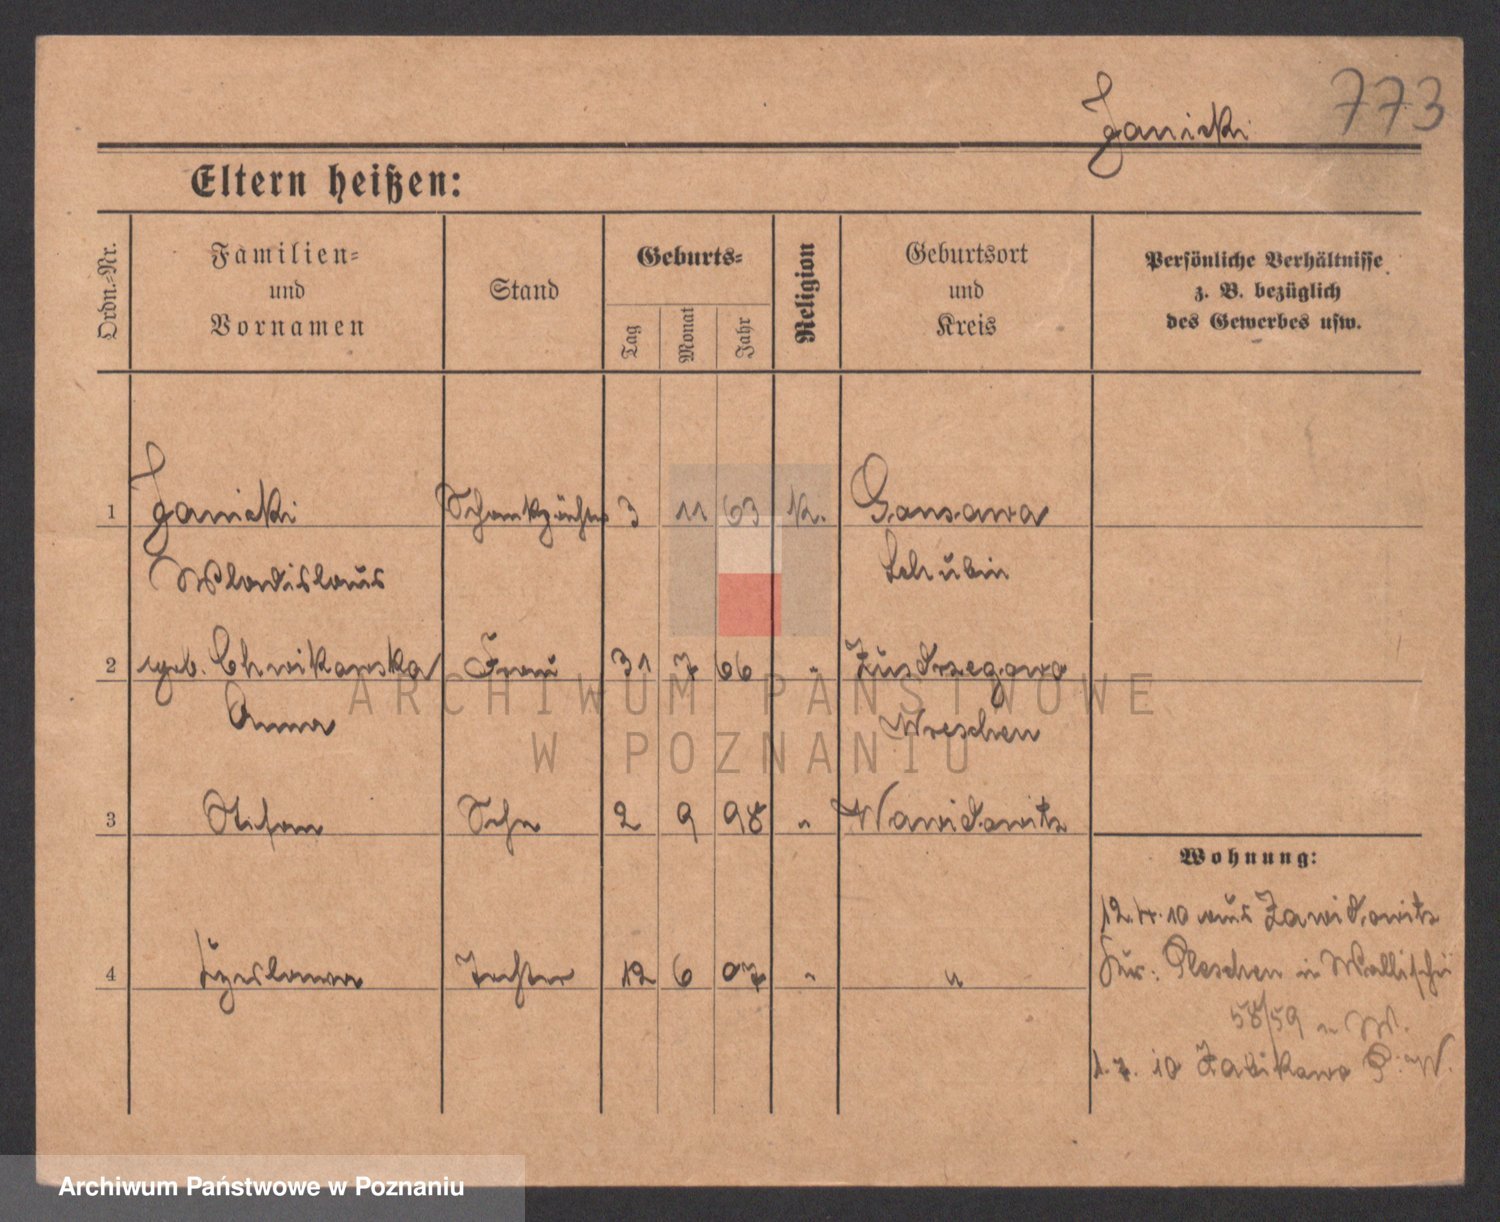 Janicki 773
Eltern heißen:
Ordn.-Nr.
Familien-
und
Vornamen
Stand
Geburts-
Tag
Monat
Jahr
Religion
Geburtsort
und
Kreis
Persönliche Verhältnisse
z. B. bezüglich
des Gewerbes usw.
1 Janicki Schankpächter 3 11 63 k. Gonsawa
Wladislaus Schubin
2 geb. Chwikowska Frau 31 7 66 "
Anna Wreschen
3 Stefan Sohn 2 9 98 "
Wohnung:
12. 4. 10 aus Zawidowitz
4 Tochter 12 6 07 " "
Kr: Pleschen in Wallischei
58/59 n W.
1. 7. 10 Zabikowo P. W.
ARCHIWUM PAŃSTWOWE
W POZNANIU
Archiwum Państwowe w Poznaniu